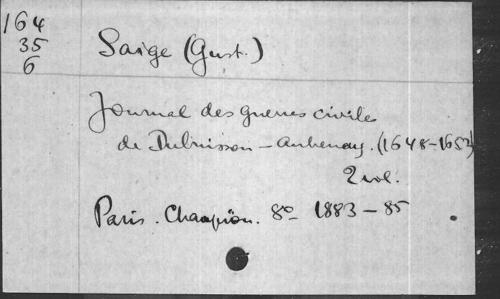 164
35
6
Saige (Gust.)
Journal des guerres civiles
de Dubuisson-Aubenay. (1648-1652)
2 vol.
Paris. Champion. 8º 1883-85